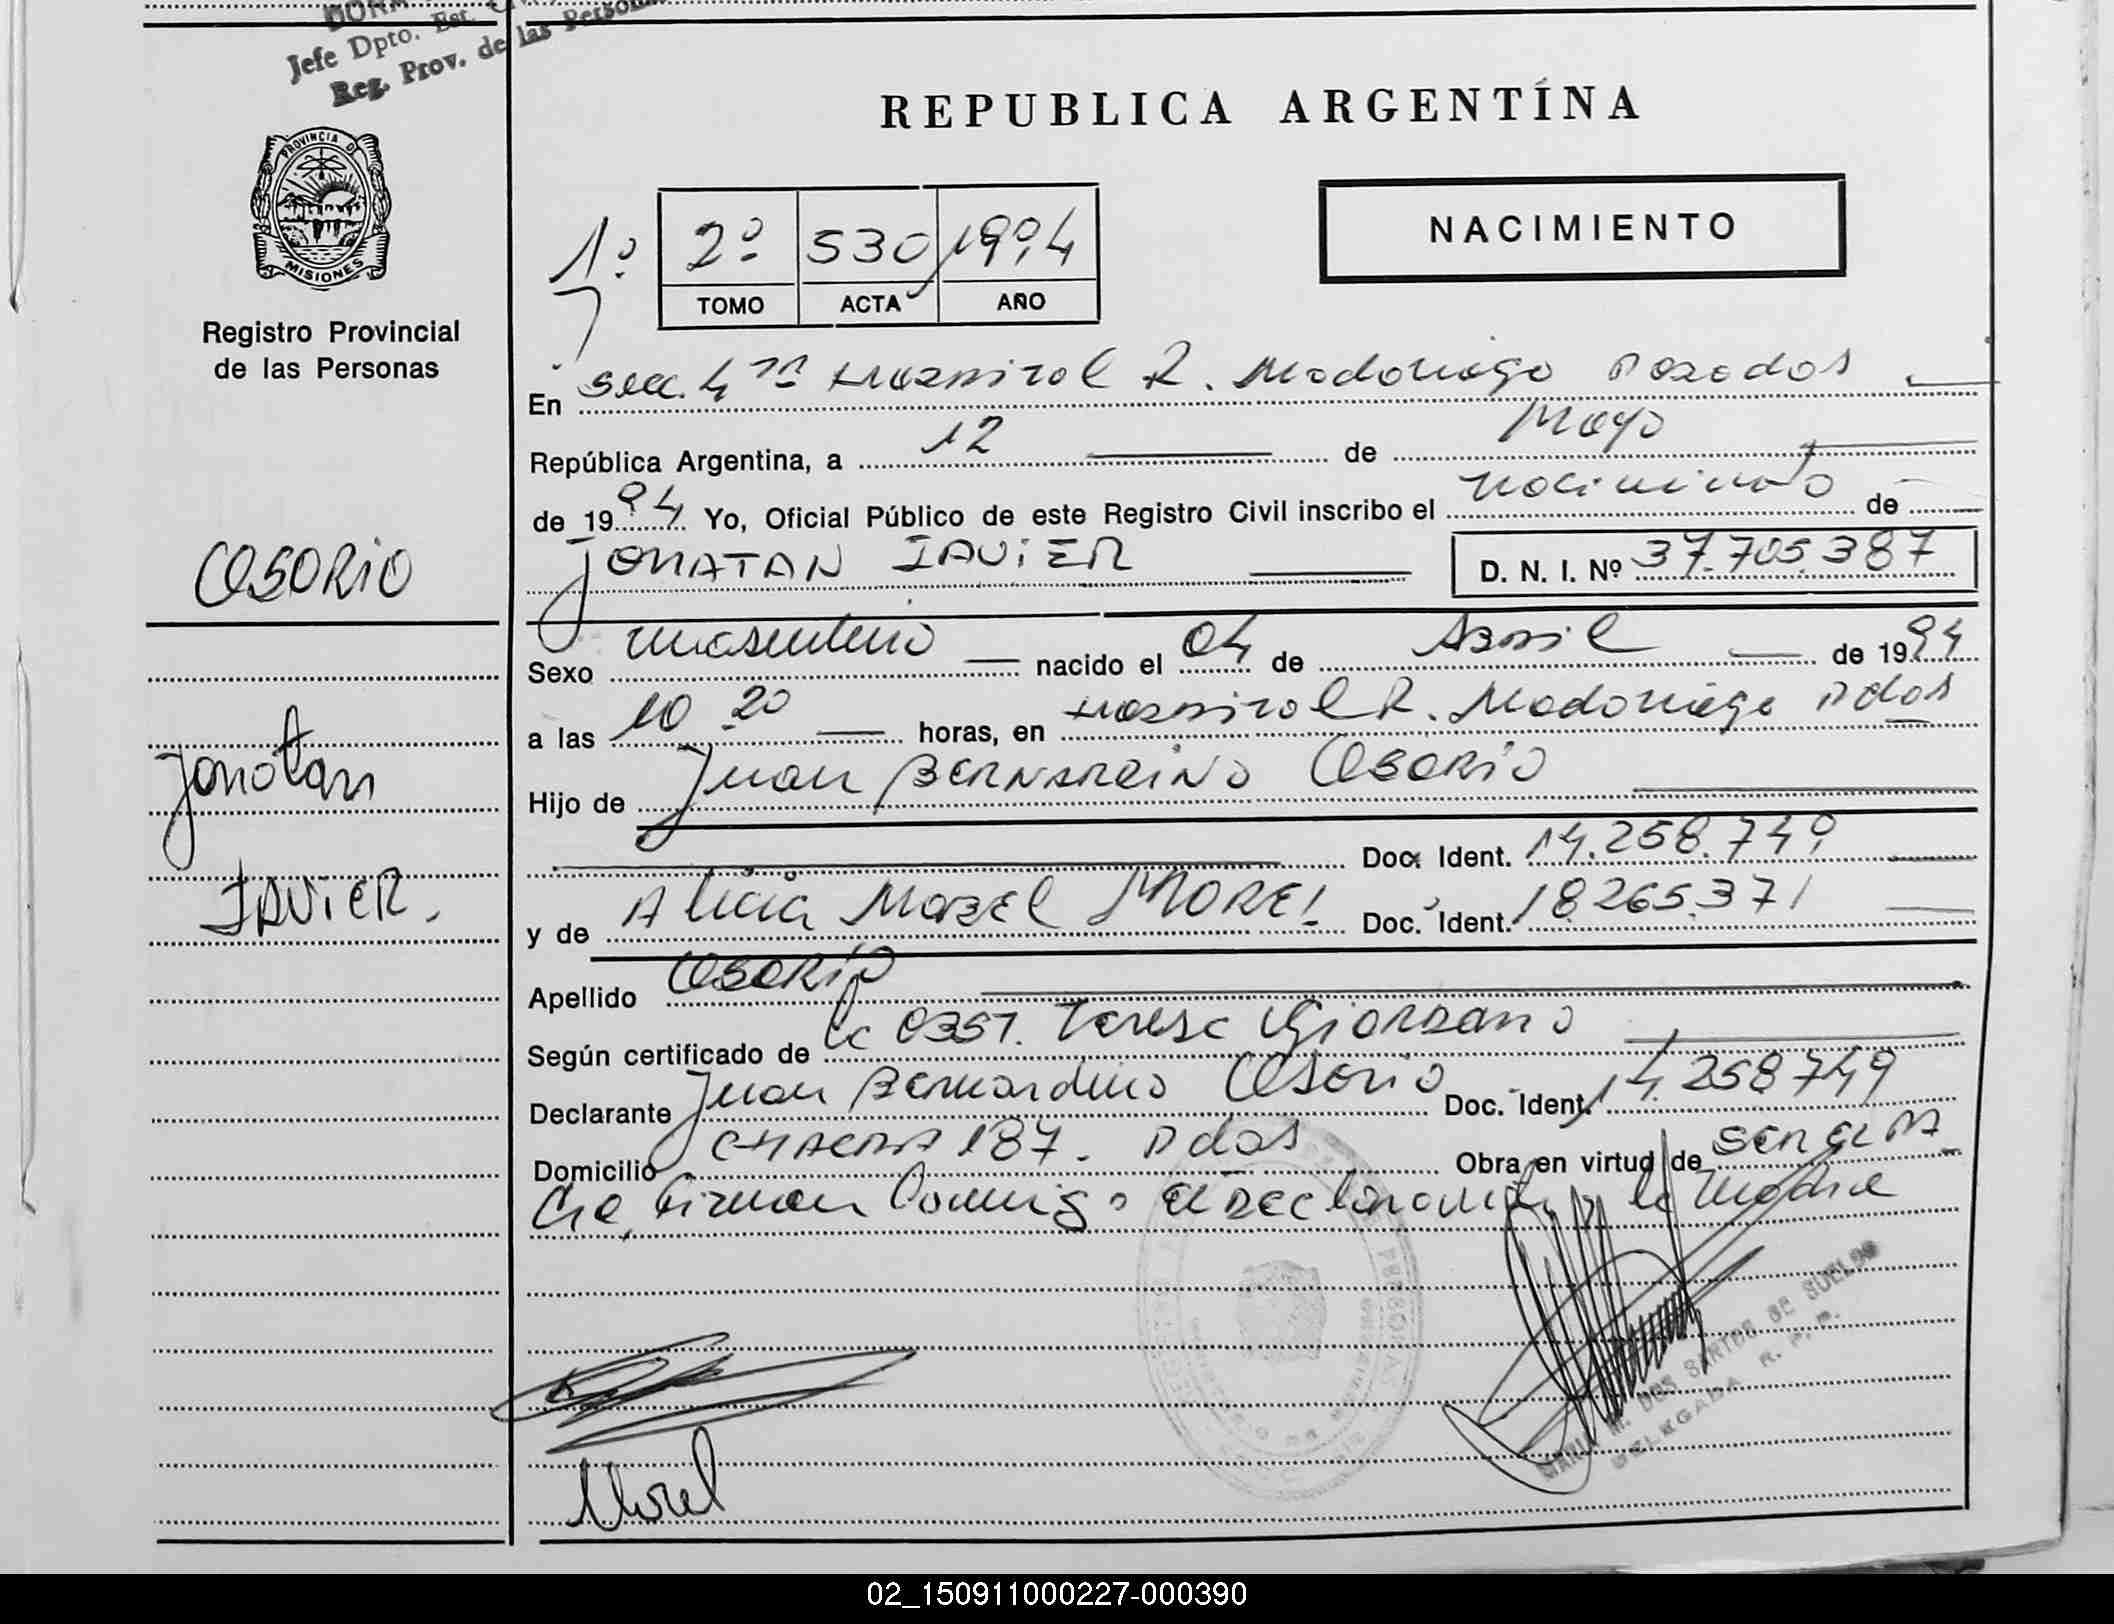 Jefe Dpto. Est.
Reg. Prov. de las Personas
PROVINCIA DE
MISIONES
Registro Provincial
de las Personas
REPUBLICA ARGENTÍNA
NACIMIENTO
1º 2º 530 1994
TOMO ACTA AÑO
En Secc. 4ta Hospital R. Madariaga Posadas
República Argentina, a 12 de Mayo
de 1994 Yo, Oficial Público de este Registro Civil inscribo el nacimiento de
JONATAN JAVIER D. N. I. Nº 37.705.387
OSORIO
Sexo masculino nacido el 04 de Abril de 1994
a las 10 20 horas, en Hospital R. Madariaga Pdas
Jonatan
Hijo de Juan BERNARDINO OSORIO
Doc. Ident. 14.258.749
JAVIER.
y de Alicia Mabel MOREL Doc. Ident. 18.265.371
Apellido OSORIO
Según certificado de la Obst. Teresa Giordano
Declarante Juan Bernardino Osorio Doc. Ident. 14.258749
Domicilio CHACRA 187. Pdas Obra en virtud de ser el PA
dre, Firman Conmigo el Declarante y la Madre
MARIA M. DOS SANTOS DE SUELDO
DELEGADA R. P. P.
Morel
02_150911000227-000390